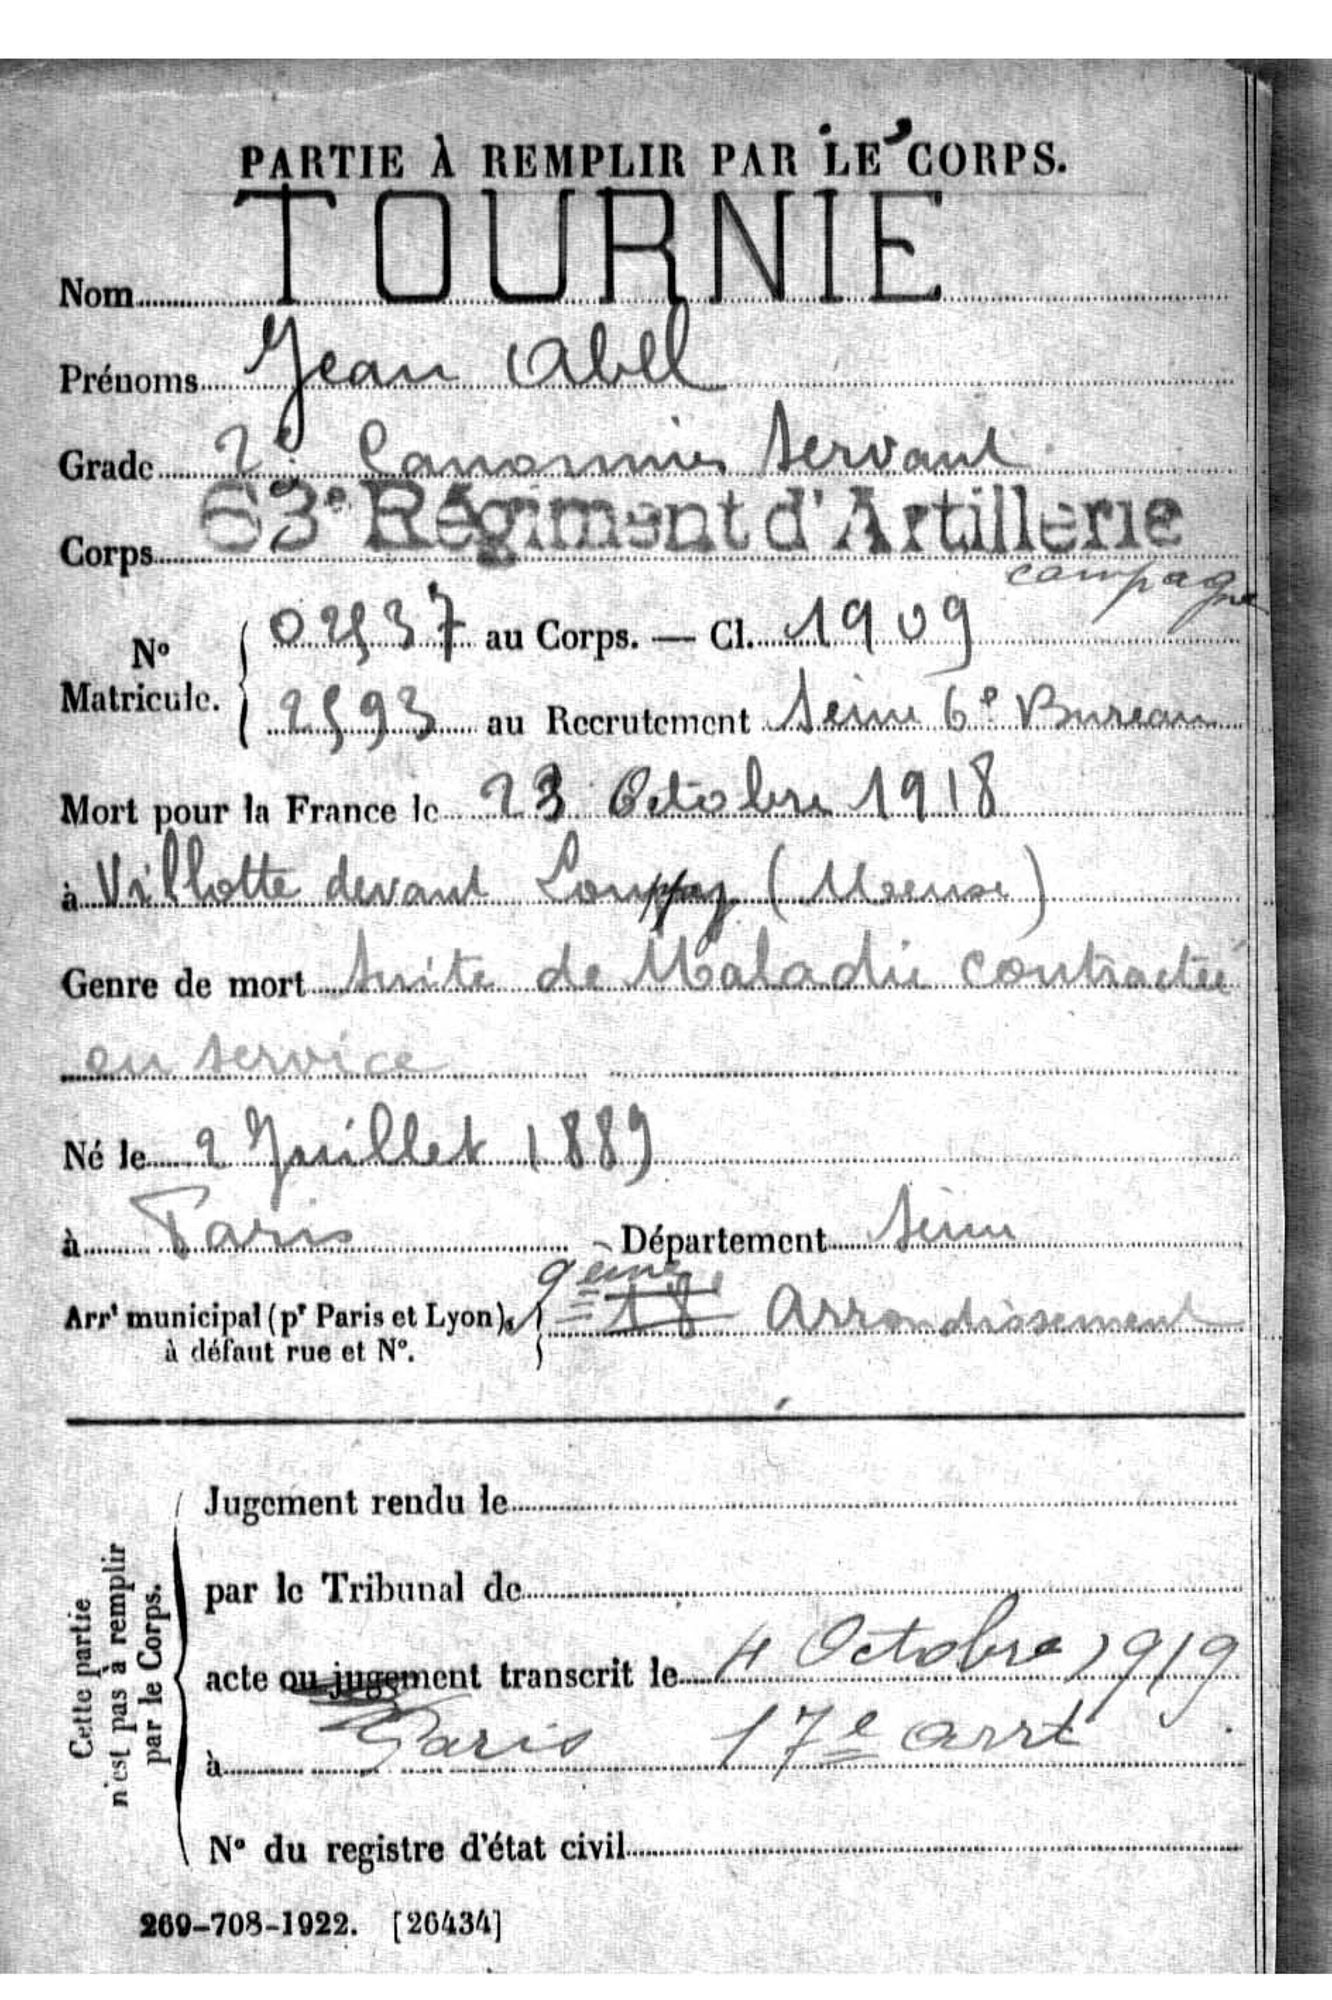 PARTIE À REMPLIR PAR LE CORPS.
Nom TOURNIE
Prénoms Jean Abel
Grade 2e Canonnier Servant
Corps 63e Régiment d'Artillerie
campagne
N° Matricule. { 02537 au Corps. — Cl. 1909
2593 au Recrutement Seine 6e Bureau
Mort pour la France le 23 Octobre 1918
à Villotte devant Louppy (Meuse)
Genre de mort Suite de Maladie contractée
en service
Né le 2 Juillet 1889
à Paris Département Seine
9eme
Arrt municipal (pr Paris et Lyon), { 18e Arrondissement
à défaut rue et N°.
Jugement rendu le
par le Tribunal de
acte ou jugement transcrit le 4 Octobre 1919
à Paris 17e arrt
N° du registre d'état civil
Cette partie
n'est pas à remplir
par le Corps.
269-708-1922. [26434]